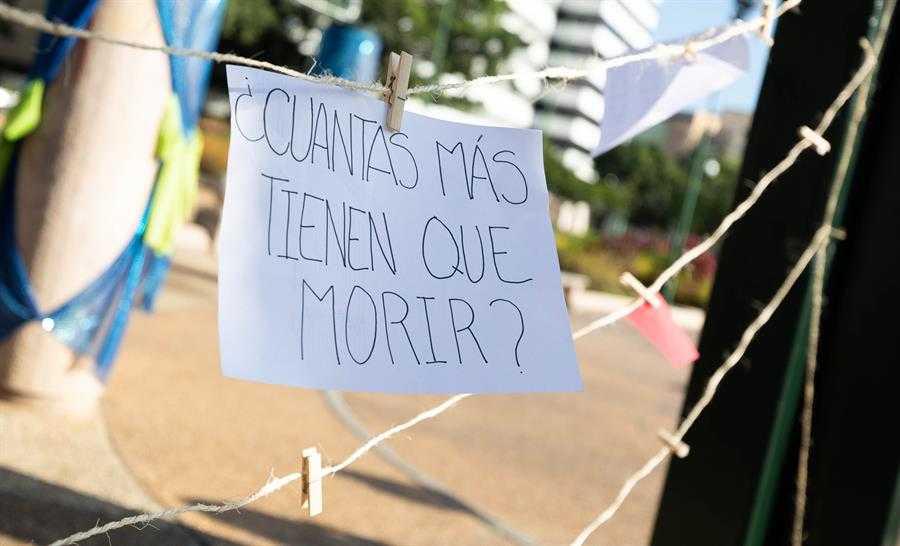 ¿CUANTAS MÁS
TIENEN QUE
MORIR?